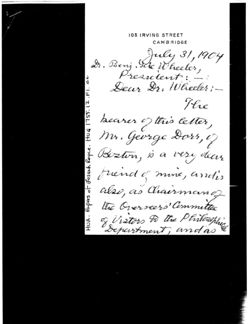 103 IRVING STREET
CAMBRIDGE
July 31, 1904
Dr. Benj. Ide Wheeler,
President:—
Dear Dr. Wheeler:—
The
bearer of this letter,
Mr. George Dorr, of
Boston, is a very dear
friend of mine, and is
also, as Chairman of
the Overseers' Committee
of Visitors to the Philosophical
Department, and as
HUA Papers of Josiah Royce